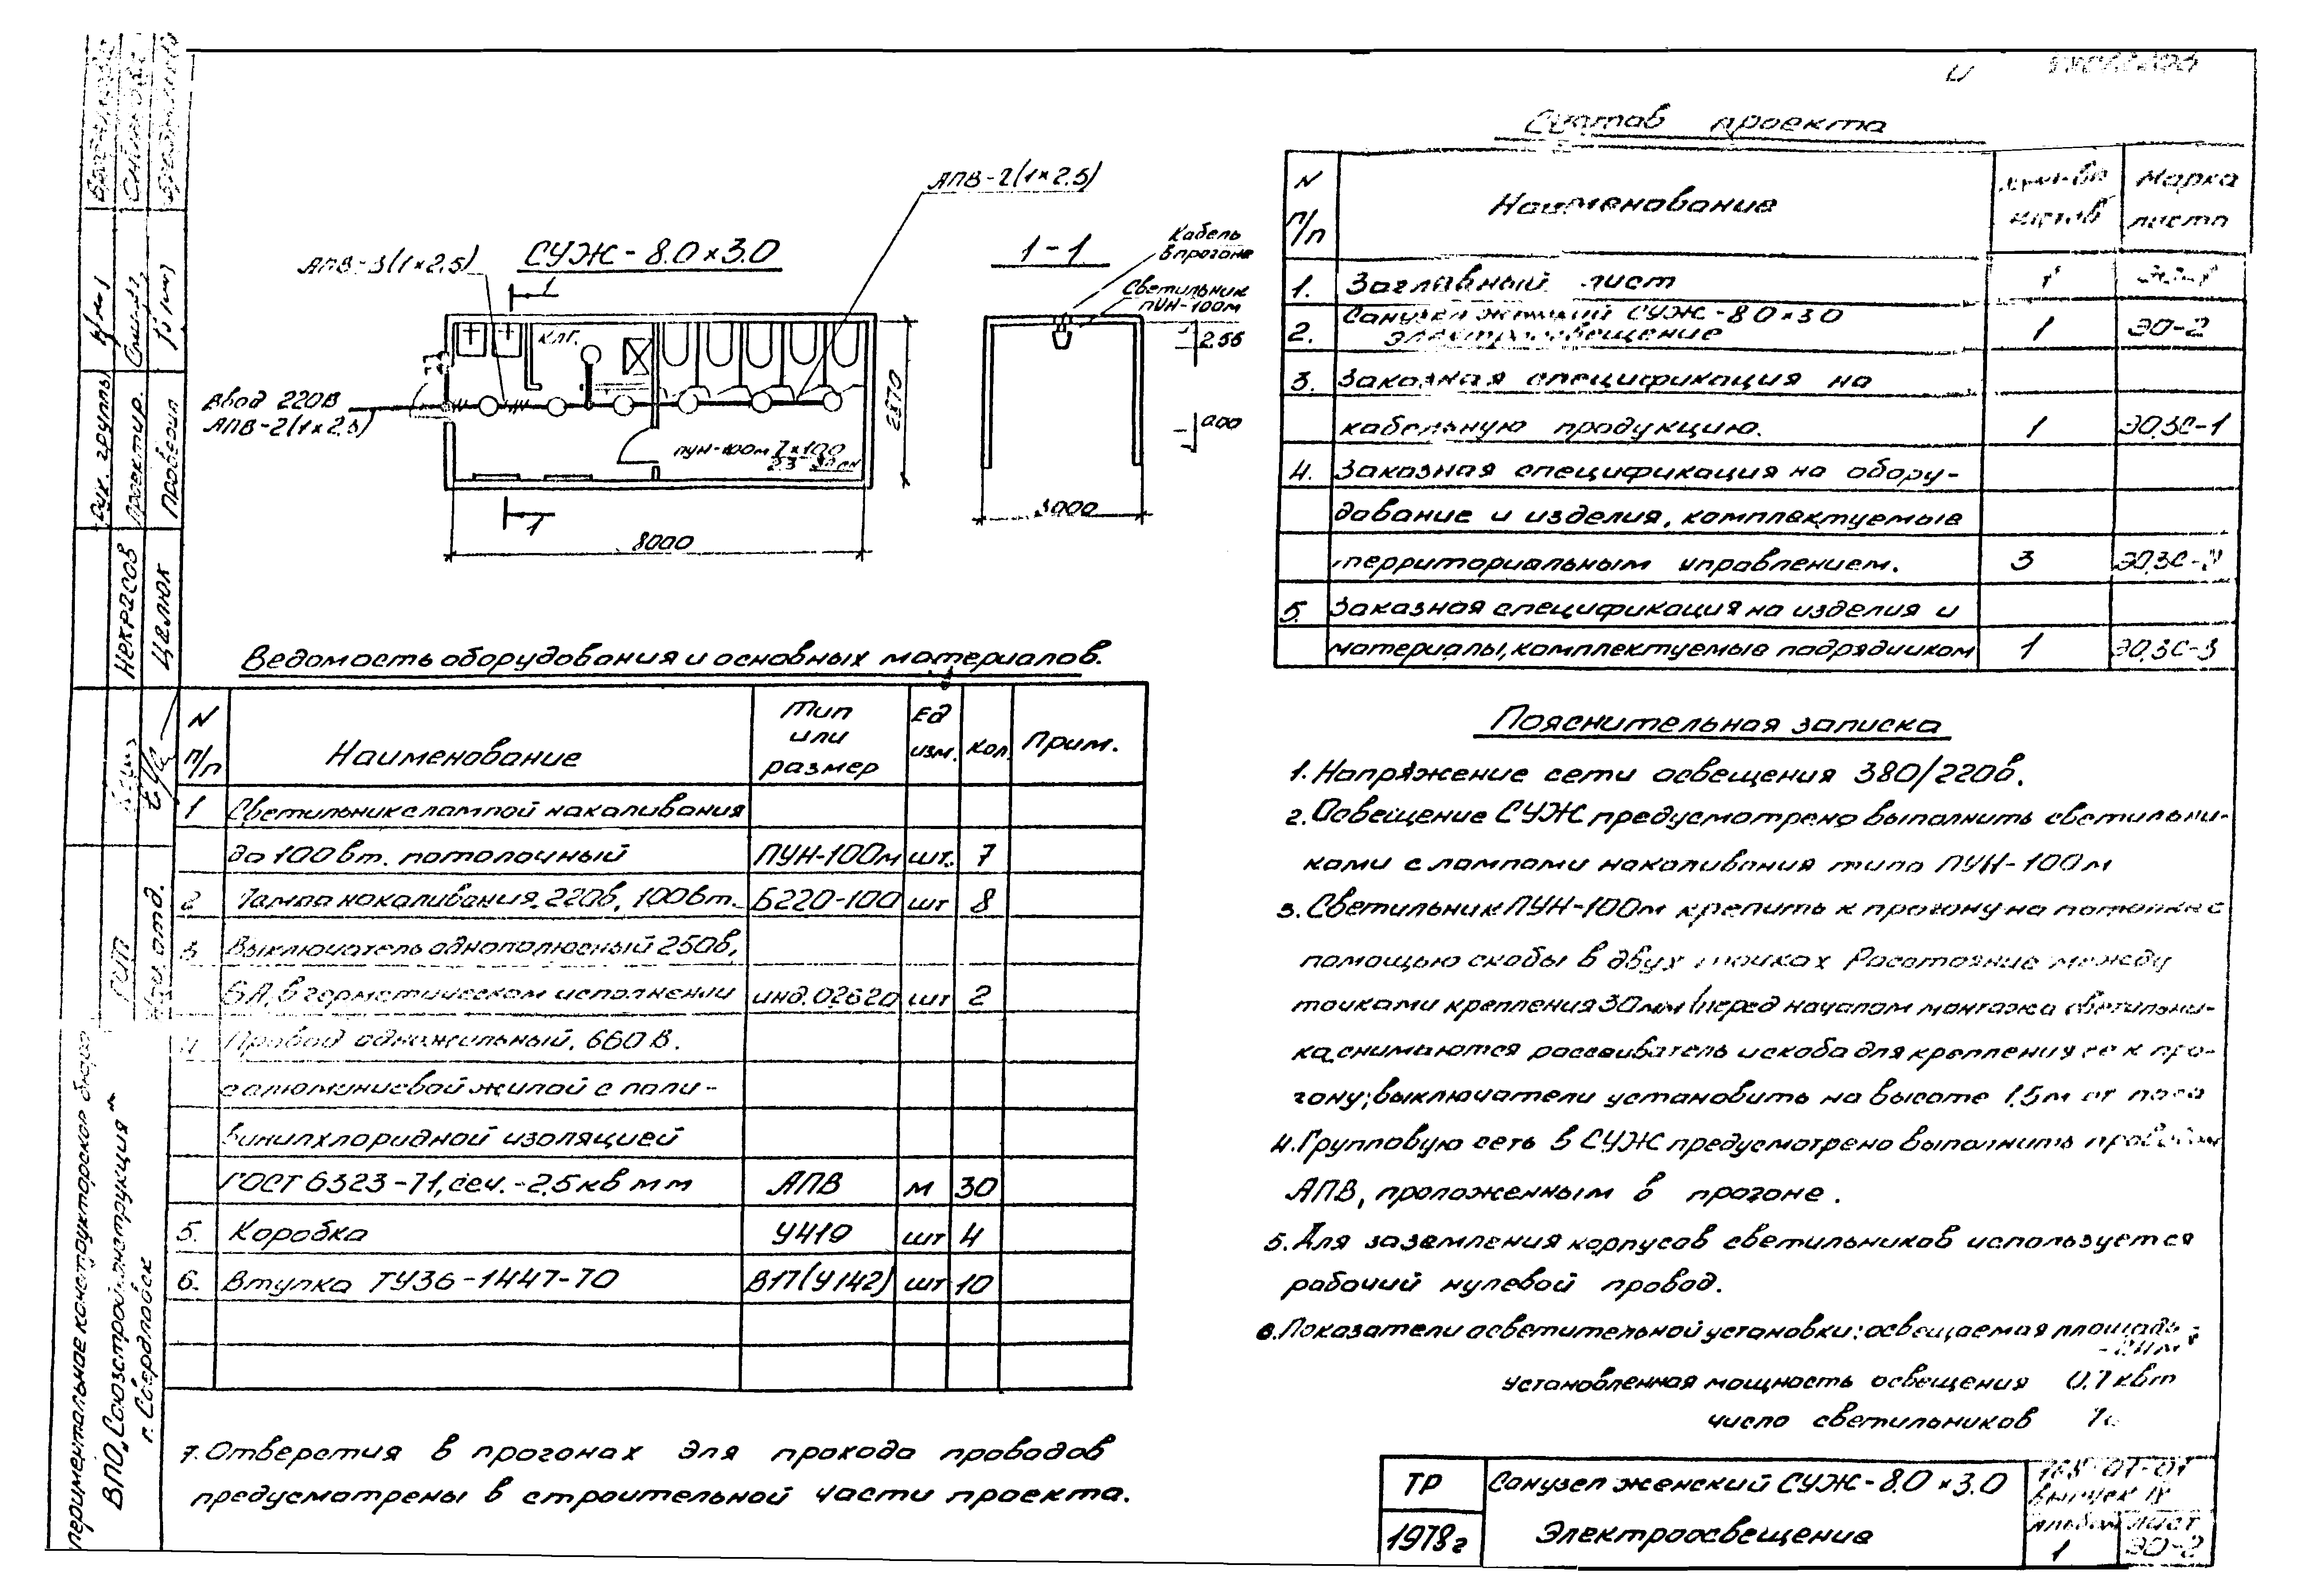 Состав проекта
N п/п
Наименование
Марка листа
1. Заглавный лист 1
2. Санузел женский СУЖ-8.0×3.0
Электроосвещение 1 ЭО-2
3. Заказная спецификация на
кабельную продукцию. 1 ЭО.ЗС-1
4. Заказная спецификация на обору-
дование и изделия, комплектуемые
территориальным управлением. 3 ЭО.ЗС-2
5. Заказная спецификация на изделия и
материалы, комплектуемые подрядчиком 1 ЭО.ЗС-3
АПВ-2(1×2.5)
АПВ-3(1×2.5)
СУЖ-8.0×3.0
1
КЛГ.
Ввод 220В
АПВ-2(1×2,5)
ПУН-100м 7×100
2.3
1
8000
1-1
Кабель
в прогоне
Светильник
ПУН-100м
0.00
3000
Ведомость оборудования и основных материалов.
N п/п
Наименование
Тип или размер
Ед изм.
Кол.
Прим.
1 Светильник с лампой накаливания
до 100вт. потолочный ПУН-100м шт. 7
2 Лампа накаливания, 220в, 100вт. Б220-100 шт 8
3 Выключатель однополюсный 250в,
6А, в герметическом исполнении инд.02620 шт 2
4 Провод одножильный, 660В.
с алюминиевой жилой с поли-
винилхлоридной изоляцией
ГОСТ 6323-71, сеч.-2,5 кв мм АПВ м 30
5. Коробка У419 шт 4
6. Втулка ТУ36-1447-70 В17(У142) шт 10
7. Отверстия в прогонах для прохода проводов
предусмотрены в строительной части проекта.
Пояснительная записка
1. Напряжение сети освещения 380/220в.
2. Освещение СУЖ предусмотрено выполнить светильни-
ками с лампами накаливания типа ПУН-100м
3. Светильник ПУН-100м крепить к прогону на потолке с
помощью скобы в двух точках Расстояние между
точками крепления 30мм (перед началом монтажа светильни-
ка, снимаются рассеиватель и скоба для крепления ее к про-
гону; выключатели установить на высоте 1,5м от пола
4. Групповую сеть в СУЖ предусмотрено выполнить проводом
АПВ, проложенным в прогоне.
5. Для заземления корпусов светильников используется
рабочий нулевой провод.
6. Показатели осветительной установки: освещаемая площадь
установленная мощность освещения 0.7 квт
число светильников
ТР
1978г
Санузел женский СУЖ-8.0×3.0
Электроосвещение
выпуск IV
альбом 1
лист ЭО-2
Рук. группы
Проектир.
Проверил
Некрасов
Целюк
ГИП
Нач. отд.
периментальное конструкторское бюро
ВПО „Союзстройконструкция"
г. Свердловск